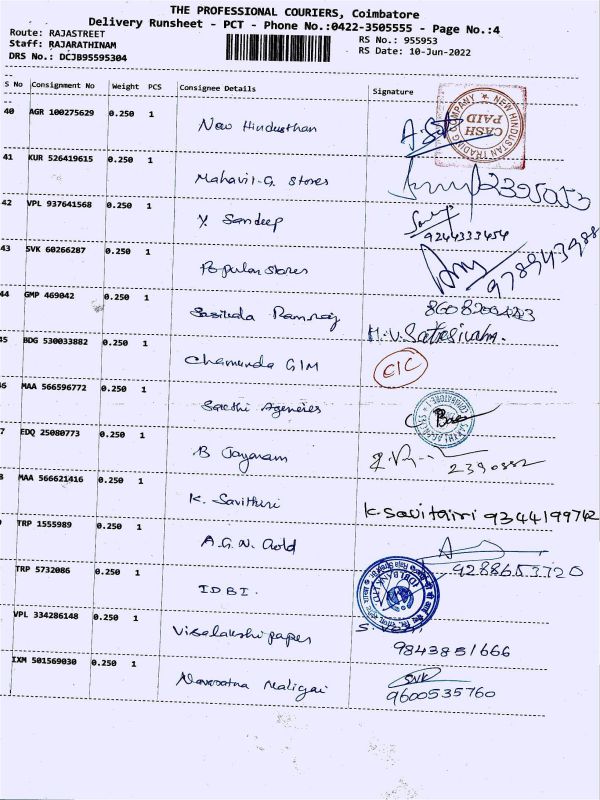 THE PROFESSIONAL COURIERS, Coimbatore
Delivery Runsheet - PCT - Phone No.:0422-3505555 - Page No.:4
Route: RAJASTREET
RS No.: 955953
Staff: RAJARATHINAM
RS Date: 10-Jun-2022
DRS No.: DCJB95595304
S No Consignment No Weight PCS Consignee Details Signature
40 AGR 100275629 0.250 1 New Hindusthan
NEW HINDUSTAN TRADING COMPANY
CASH PAID
41 KUR 526419615 0.250 1
Mahavir G. Stores
42 VPL 937641568 0.250 1
Y Sandeep
9244333454
43 SVK 60266287 0.250 1
Popular Stores
44 GMP 469042 0.250 1
Sasikala Ramraj
45 BDG 530033882 0.250 1
Chamunda GIM
MAA 566596772 0.250 1
Sakthi Agencies
EDQ 25080773 0.250 1
B Jayaram 2390882
MAA 566621416 0.250 1
K. Savithiri K. Savitairi 9344199742
TRP 1555989 0.250 1
A.G.N. Gold
TRP 5732086 0.250 1 9288653720
IDBI.
VPL 334286148 0.250 1
Visalakshi paper 9843851666
IXM 501569030 0.250 1
Navaratna Maligai SVK
9600535760